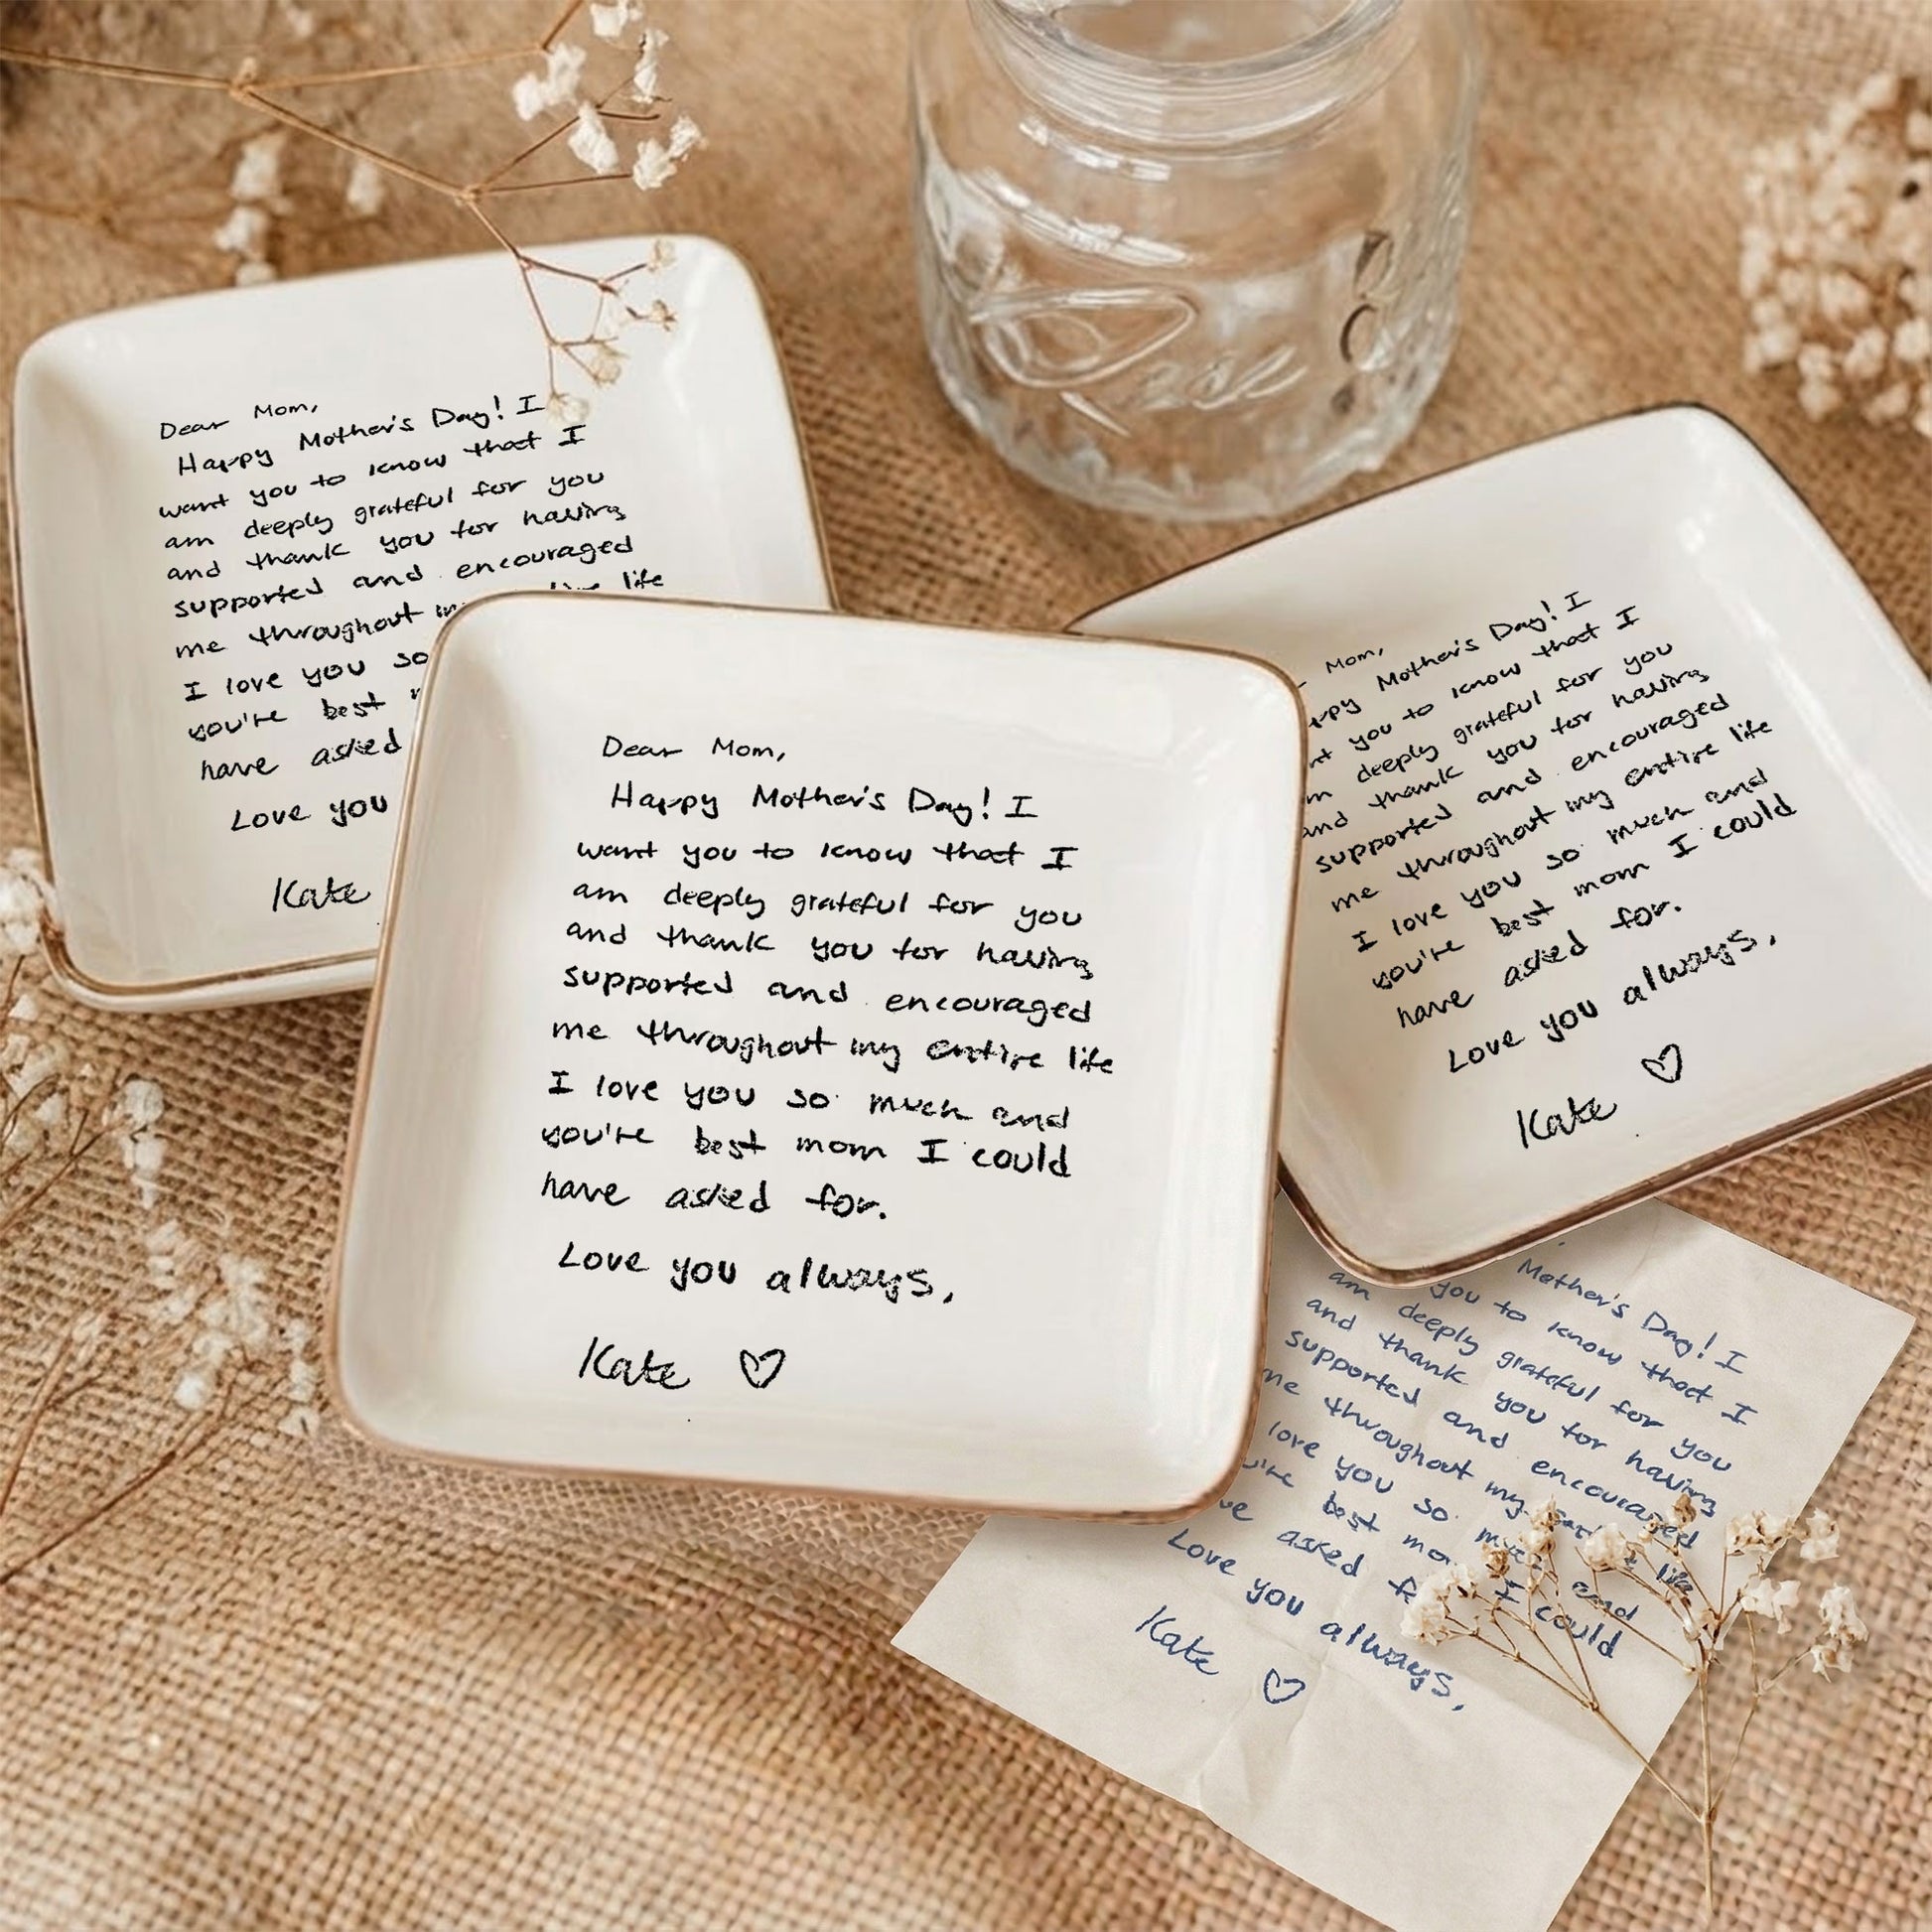 Dear Mom,
Happy Mother's Day! I
want you to know that I
am deeply grateful for you
and thank you for having
supported and encouraged
me throughout
life
I love you so
you're best
have asked
Love you
Kate
Dear Mom,
Happy Mother's Day! I
want you to know that I
am deeply grateful for you
and thank you for having
supported and encouraged
me throughout my entire life
I love you so much and
you're best mom I could
have asked for.
Love you always,
Kate ♡
Mom,
Mother's Day! I
you to know that I
deeply grateful for you
and thank you for having
supported and encouraged
me throughout my entire life
I love you so much and
you're best mom I could
have asked for.
Love you always,
Kate ♡
Mother's Day! I
you to know that I
am deeply grateful for you
and thank you for having
supported and encouraged
me throughout my life
love you so and
best I could
asked
Love you always,
Kate ♡